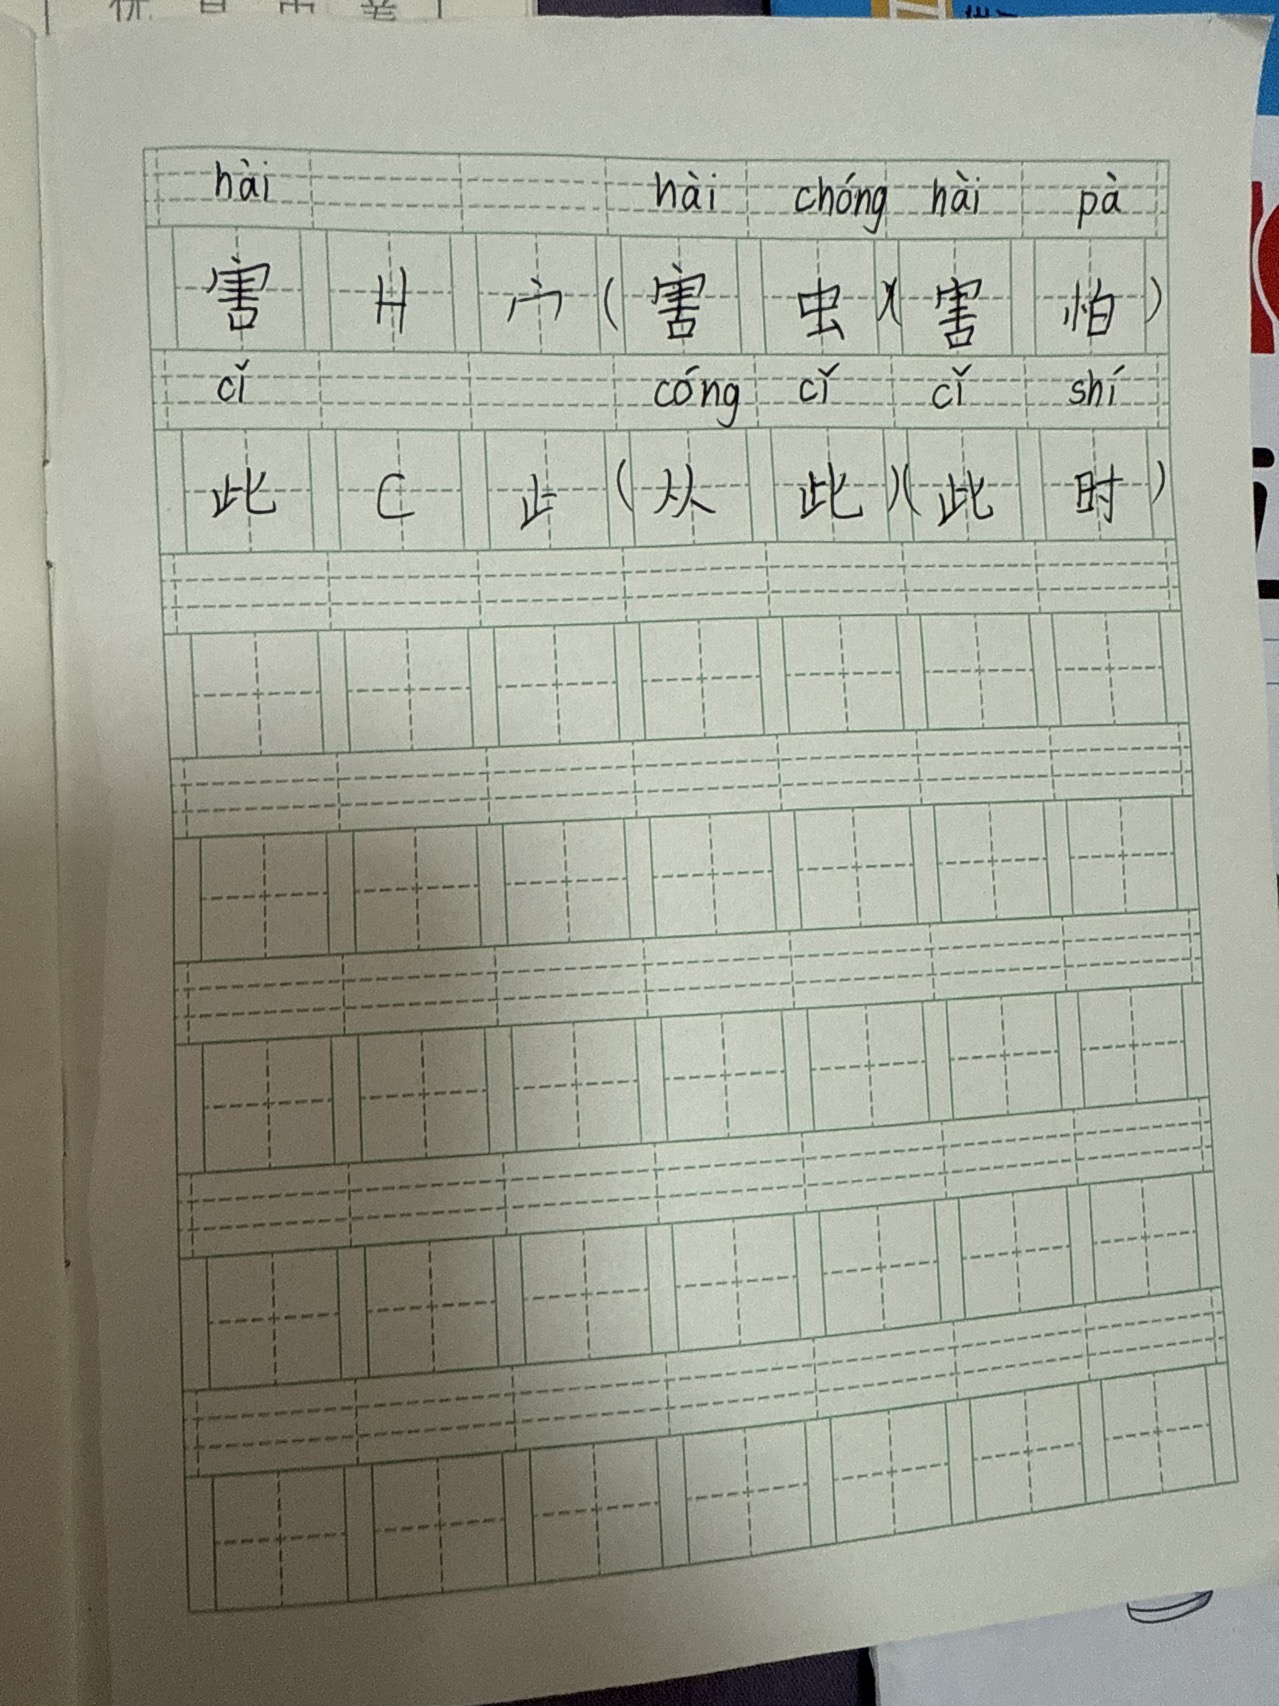 hài hài chóng hài pà
害 H 宀 (害 虫)(害 怕)
cǐ cóng cǐ cǐ shí
此 C 止 (从 此)(此 时)